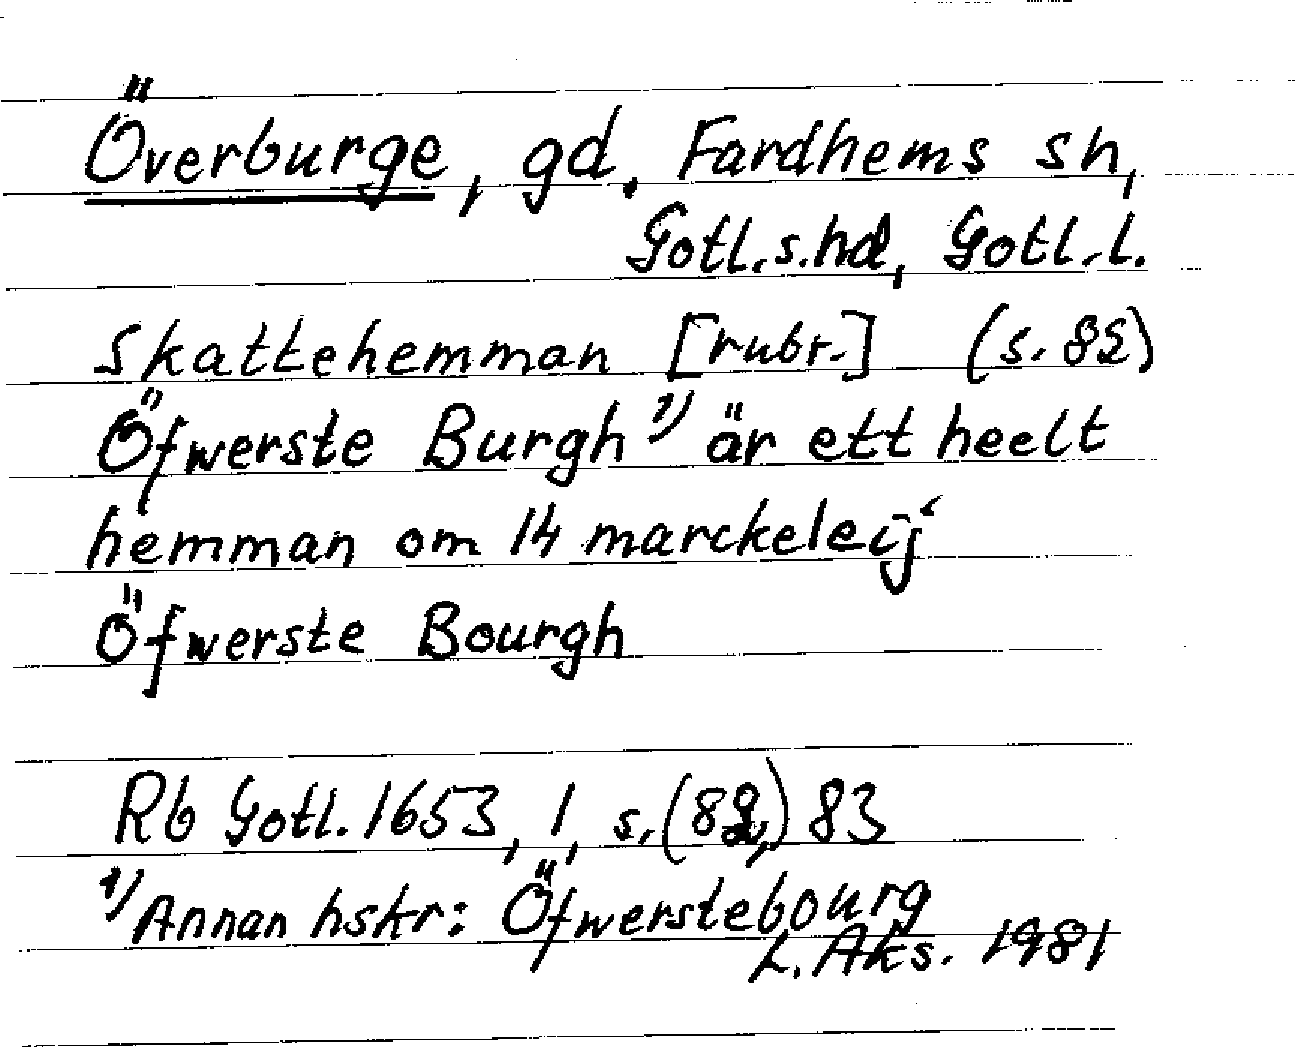 Överburge, gd. Fardhems sn,
Gotl.s.hd, Gotl.l.
Skattehemman [rubr.] (s. 82)
Öfwerste Burgh 1) är ett heelt
hemman om 14 marckeleij
Öfwerste Bourgh
Rb Gotl. 1653, 1, s. (82,) 83
1) Annan hskr: Öfwerstebourg
L. Aks. 1981